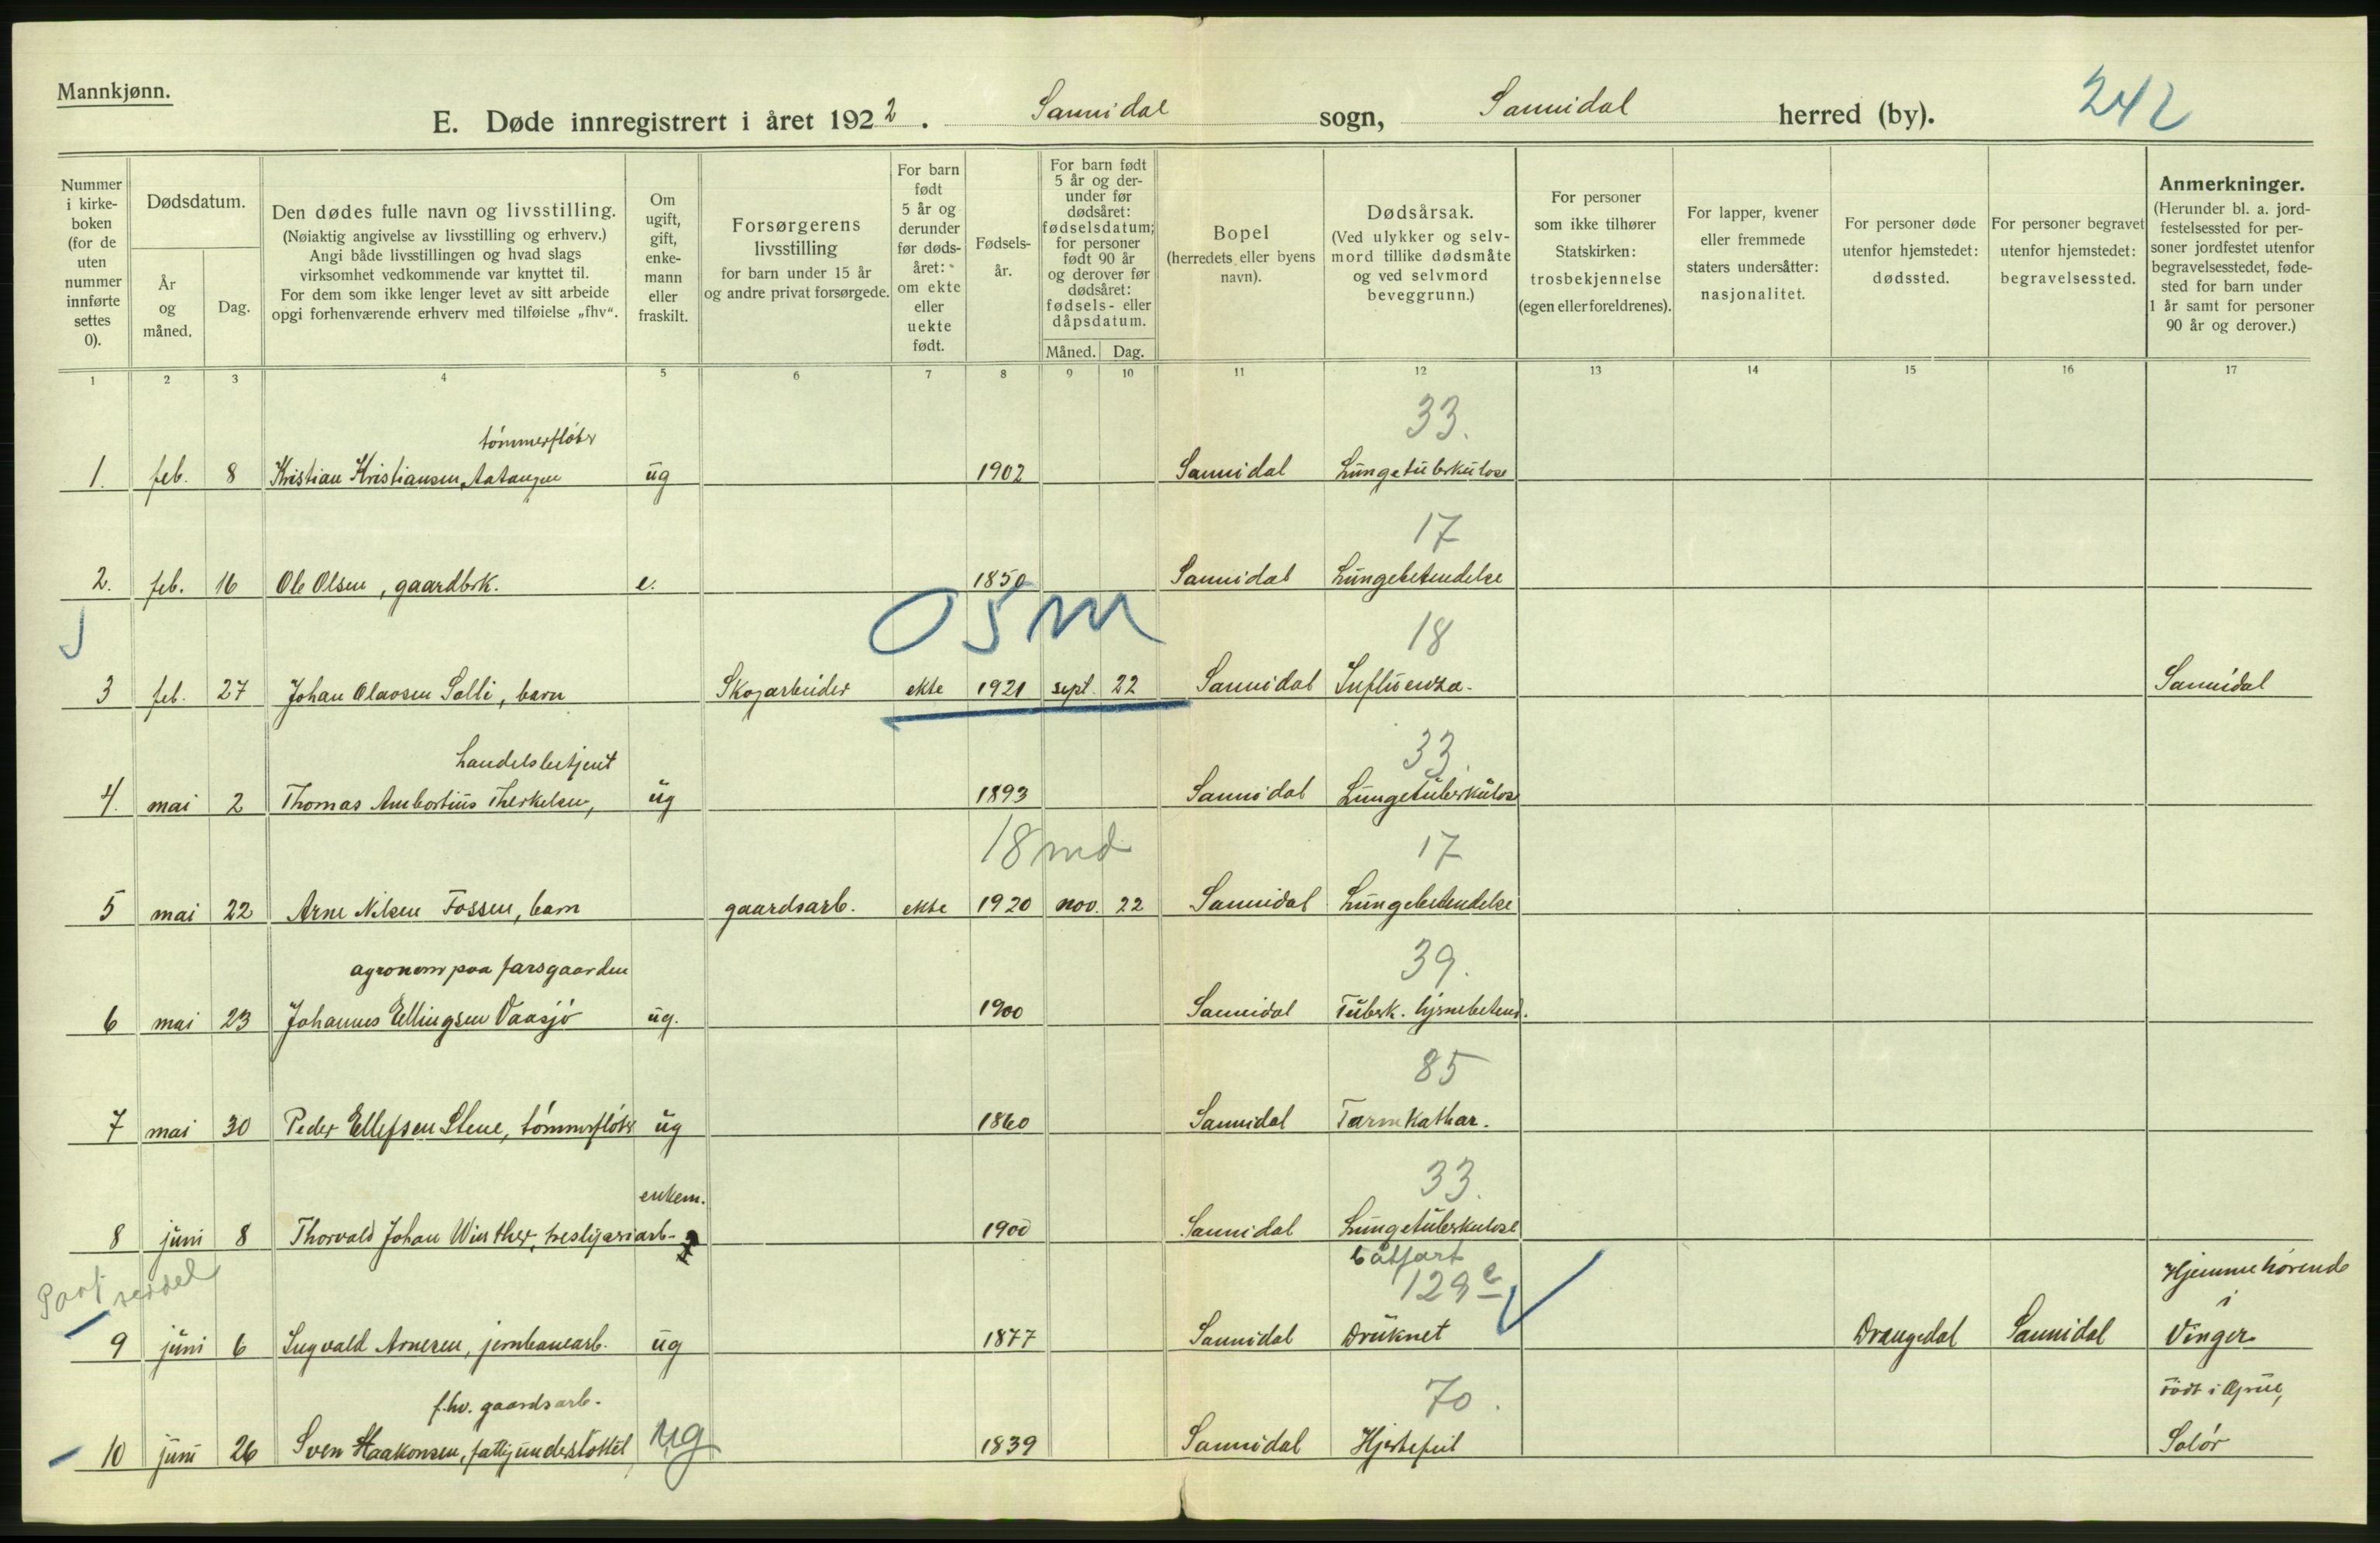 Mannkjønn.
E. Døde innregistrert i året 1922. Sannidal sogn, Sannidal herred (by).
242
Nummer i kirke-boken (for de uten nummer innførte settes 0).
Dødsdatum.
År og måned.
Dag.
Den dødes fulle navn og livsstilling.
(Nøiaktig angivelse av livsstilling og erhverv.)
Angi både livsstillingen og hvad slags
virksomhet vedkommende var knyttet til.
For dem som ikke lenger levet av sitt arbeide
opgi forhenværende erhverv med tilføielse „fhv“.
Om ugift, gift, enke-mann eller fraskilt.
Forsørgerens livsstilling
for barn under 15 år
og andre privat forsørgede.
For barn født 5 år og derunder før døds-året: om ekte eller uekte født.
Fødsels-år.
For barn født 5 år og der-under før dødsåret: fødselsdatum; for personer født 90 år og derover før dødsåret: fødsels- eller dåpsdatum.
Måned. Dag.
Bopel
(herredets eller byens navn).
Dødsårsak.
(Ved ulykker og selv-mord tillike dødsmåte og ved selvmord beveggrunn.)
For personer som ikke tilhører Statskirken: trosbekjennelse (egen eller foreldrenes).
For lapper, kvener eller fremmede staters undersåtter: nasjonalitet.
For personer døde utenfor hjemstedet: dødssted.
For personer begravet utenfor hjemstedet: begravelsessted.
Anmerkninger.
(Herunder bl. a. jord-festelsessted for per-soner jordfestet utenfor begravelsesstedet, føde-sted for barn under 1 år samt for personer 90 år og derover.)
1 2 3 4 5 6 7 8 9 10 11 12 13 14 15 16 17
33.
tømmerfløter
1. feb. 8 Kristian Kristiansen, Aatangen ug 1902 Sannidal Lungetuberkulose
17
2. feb. 16 Ole Olsen, gaardbrk. e. 1850 Sannidal Lungebetendelse
05 m
18
3 feb. 27 Johan Olavsen Solli, barn Skogarbeider ekte 1921 sept. 22 Sannidal Influenza. Sannidal
33.
handelsbetjent
4. mai 2 Thomas Ambortius Therkelsen, ug 1893 Sannidal Lungetuberkulose
18 md
17
5 mai 22 Arne Nilsen Fossen, barn gaardsarb. ekte 1920 nov. 22 Sannidal Lungebetendelse
39.
agronom paa farsgaarden
6 mai 23 Johannes Ellingsen Vaasjø ug. 1900 Sannidal Tuberk. hjernebetend.
85
7 mai 30 Peder Ellefsen Stene, tømmerfløter ug 1860 Sannidal Tarmkathar.
33.
enkem.
8 juni 8 Thorvald Johan Winther, tresliperiarb. 1900 Sannidal Lungetuberkulose
båtfart
129 e
Hjemmehørende
i
9 juni 6 Ingvald Arnesen, jernbanearb. ug 1877 Sannidal Druknet Drangedal Sannidal Vinger
70.
f.hv. gaardsarb.
født i Grue,
10 juni 26 Sven Haakonsen, fattigunderstøttet ug 1839 Sannidal Hjertefeil Solør